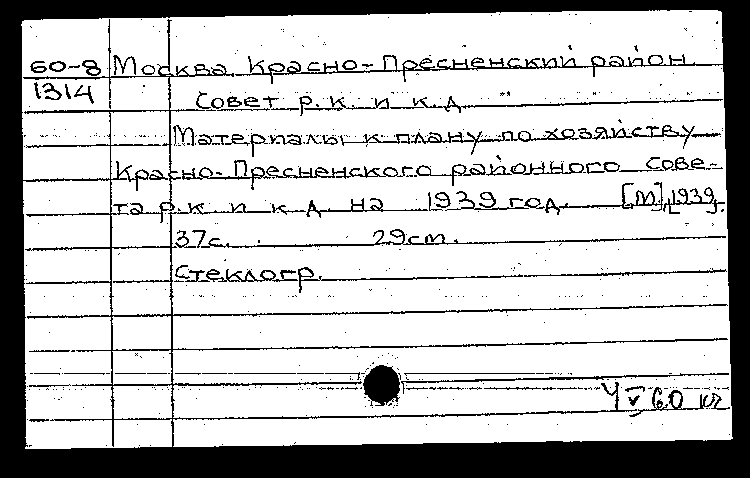 60-8 Москва. Красно-Пресненский район.
1314 Совет р. к. и к. д.
Материалы к плану по хозяйству
Красно-Пресненского районного сове-
та р. к. и к. д. на 1939 год. [М], [1939].
37 с. 29 cm.
Стеклогр.
4 V 60 кг